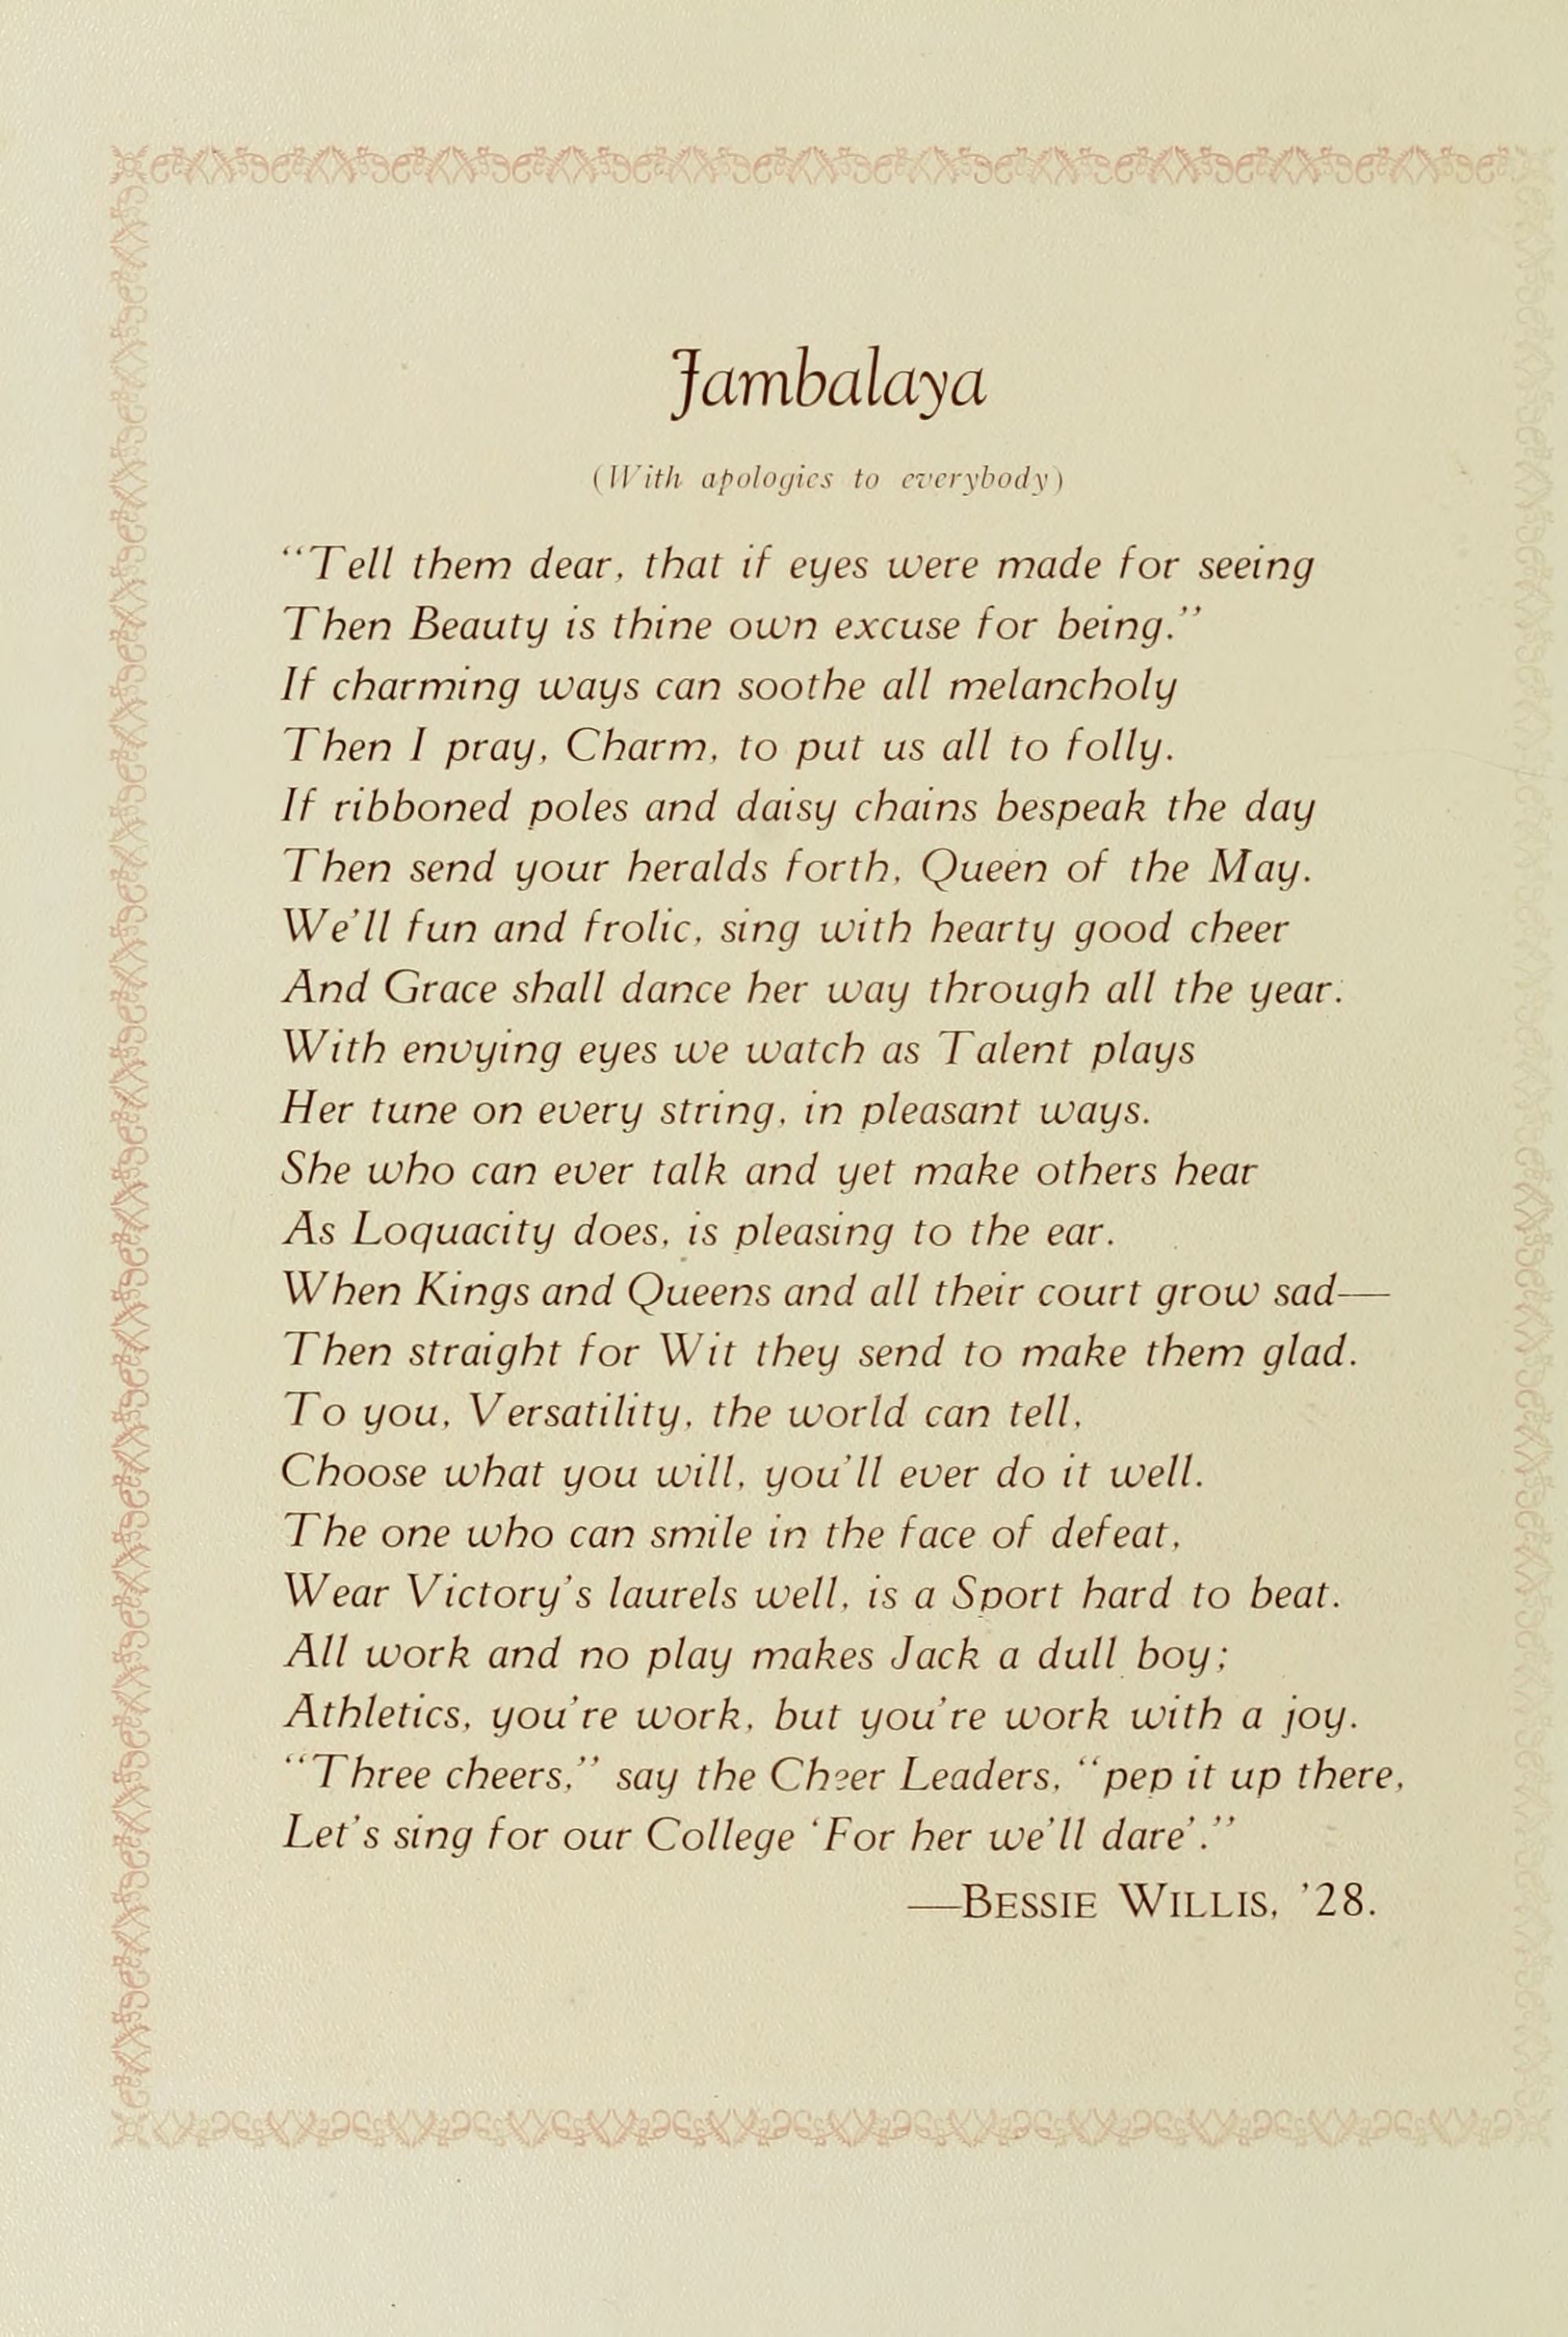 Jambalaya
(With apologies to everybody)
“Tell them dear, that if eyes were made for seeing
Then Beauty is thine own excuse for being.”
If charming ways can soothe all melancholy
Then I pray, Charm, to put us all to folly.
If ribboned poles and daisy chains bespeak the day
Then send your heralds forth, Queen of the May.
We’ll fun and frolic, sing with hearty good cheer
And Grace shall dance her way through all the year.
With envying eyes we watch as Talent plays
Her tune on every string, in pleasant ways.
She who can ever talk and yet make others hear
As Loquacity does, is pleasing to the ear.
When Kings and Queens and all their court grow sad—
Then straight for Wit they send to make them glad.
To you, Versatility, the world can tell,
Choose what you will, you’ll ever do it well.
The one who can smile in the face of defeat,
Wear Victory’s laurels well, is a Sport hard to beat.
All work and no play makes Jack a dull boy;
Athletics, you’re work, but you’re work with a joy.
“Three cheers,” say the Cheer Leaders, “pep it up there,
Let’s sing for our College ‘For her we’ll dare’.”
—BESSIE WILLIS, ’28.